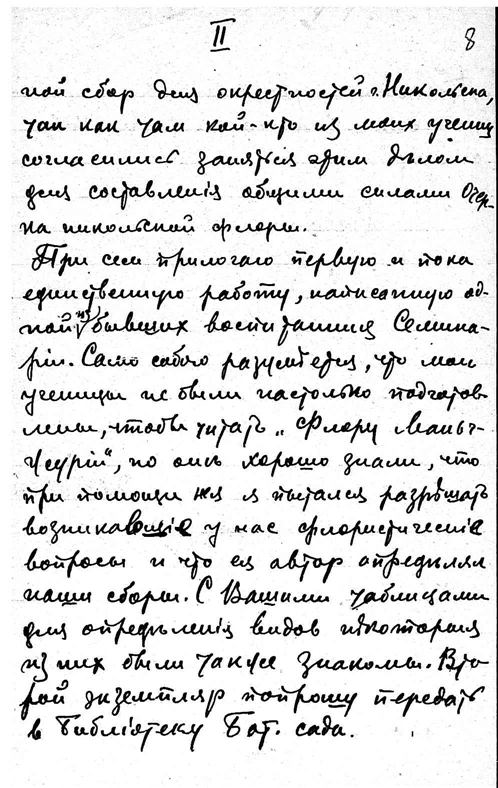 II
8
ной сбор для окрестностей г. Никольска,
так как там кой-кто из моих учениц
согласились заняться этим дѣлом
для составленія общими силами Очер-
ка никольской флоры.
При сем прилагаю первую и пока
единственную работу, написанную од-
ной из бывших воспитанниц Семина-
ріи. Само собою разумѣется, что мои
ученицы не были настолько подготов-
лены, чтобы читать „Флору Маньч-
журіи“, но онѣ хорошо знали, что
при помощи ея я пытался разрѣшать
возникавшіе у нас флористическіе
вопросы и что ея автор опредѣлял
наши сборы. С Вашими таблицами
для опредѣленія видов нѣкоторыя
из них были также знакомы. Вто-
рой экземпляр попрошу передать
в Библіотеку Бот. сада.